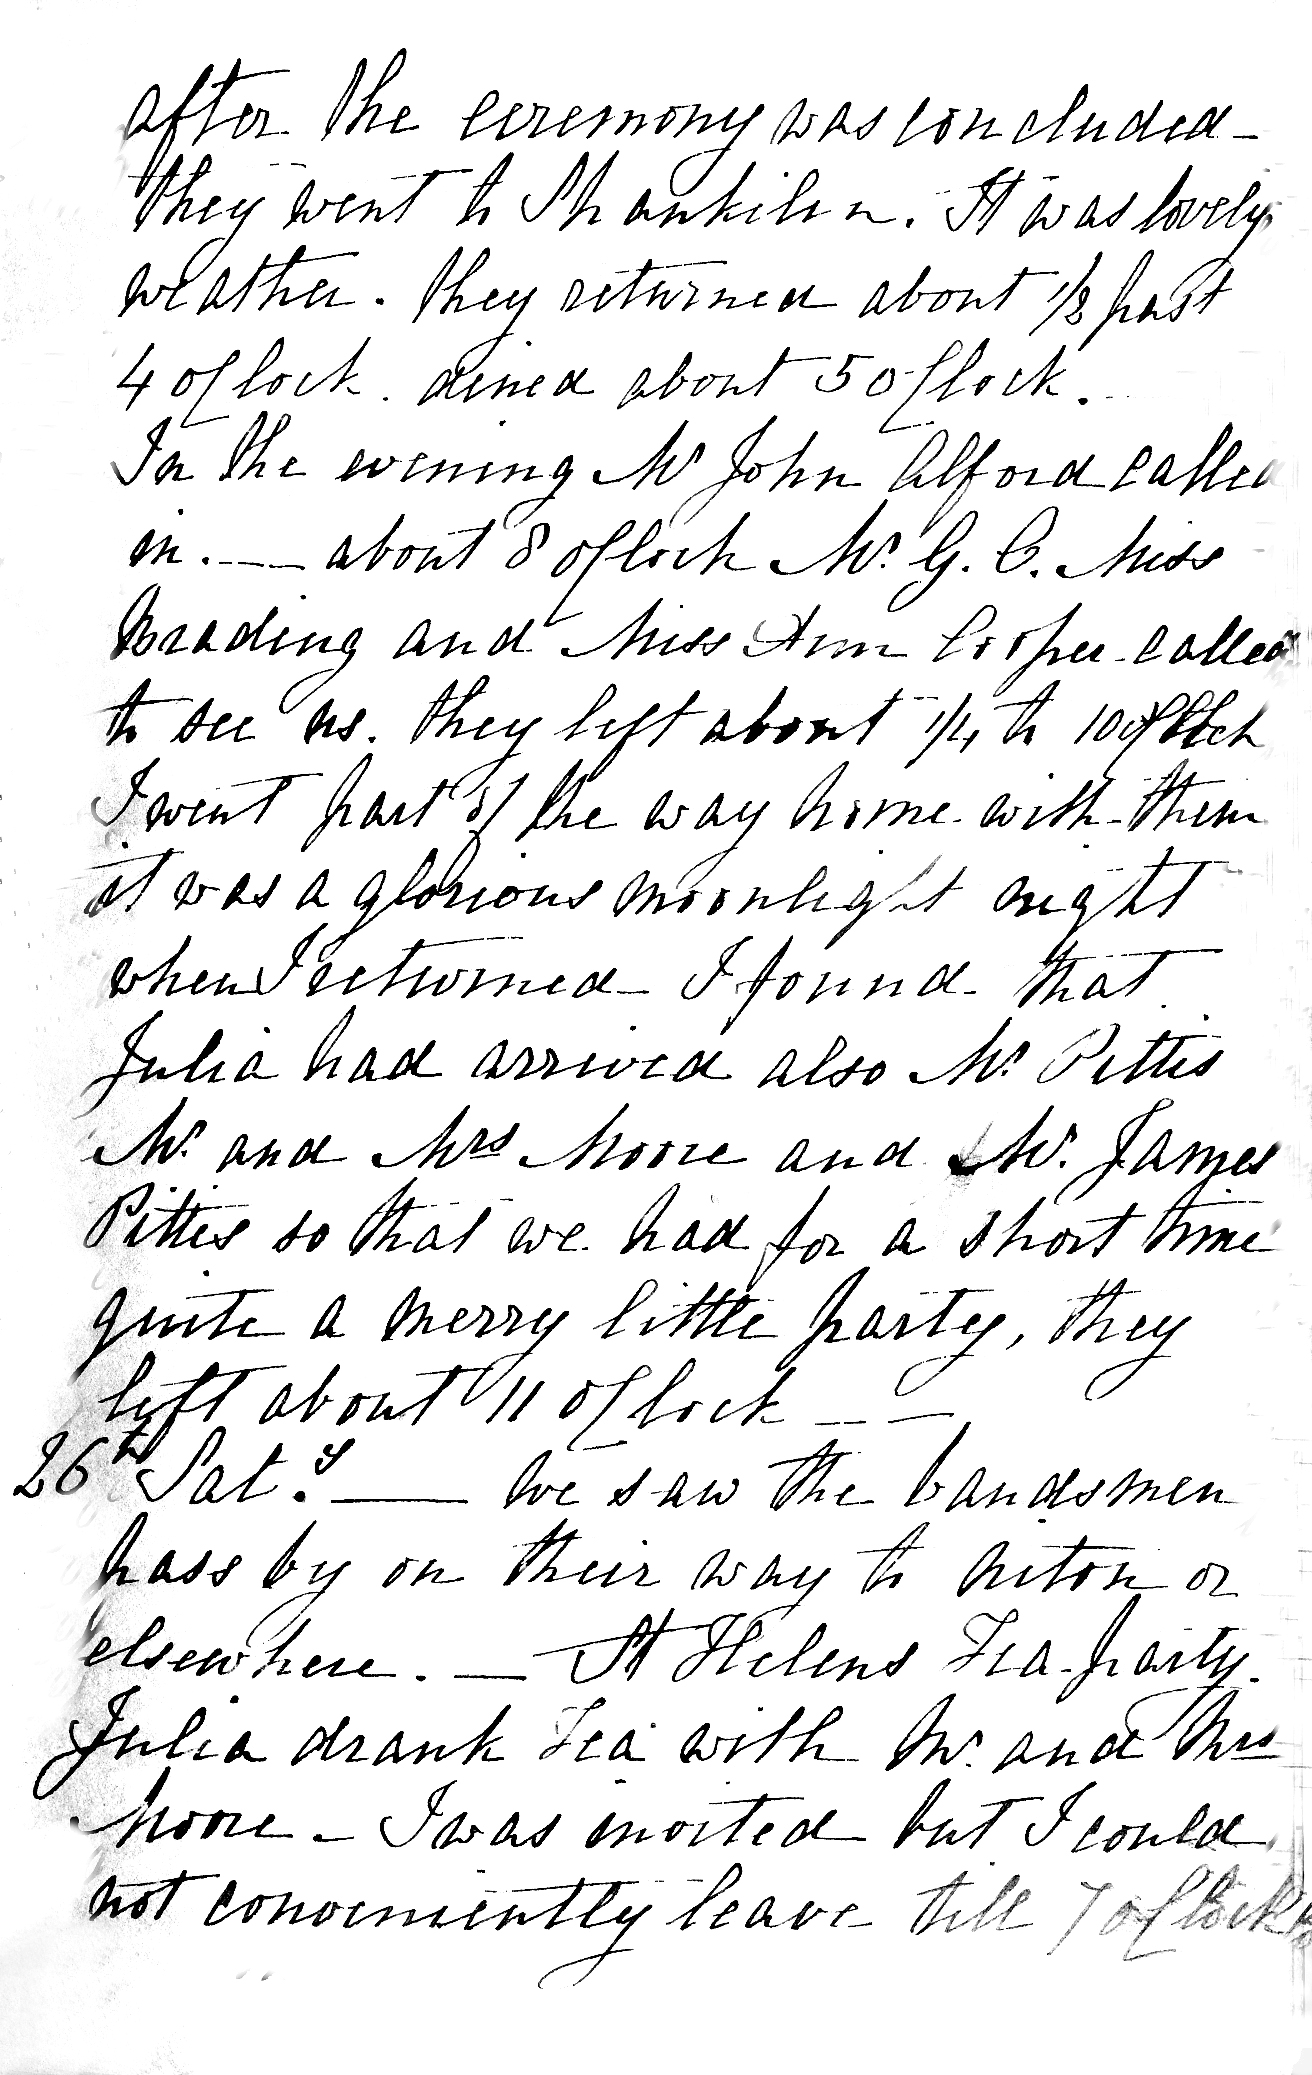 after the ceremony was concluded -
they went to Shanklin. It was lovely
weather. they returned about 1/2 past
4 oClock. dined about 5 oClock.
In the evening Mr John Alford called
in. -- about 8 oClock Mr. G. C. Miss
Brading and Miss Ann Cooper called
to see us. they left about 1/4 to 10 oClock
I went part of the way home with them
it was a glorious moonlight night
when I returned - I found - that
Julia had arrived also Mr. Pittis
Mr. and Mrs Moore and Mr. James
Pittis so that we had for a short time
quite a merry little party, they
left about 11 oClock ---
26th Sat.y — We saw the bandsmen
pass by on their way to Niton or
elsewhere. — St Helens Tea party.
Julia drank Tea with Mr. and Mrs
Moore - I was invited but I could
not conveniently leave till 7 oClock